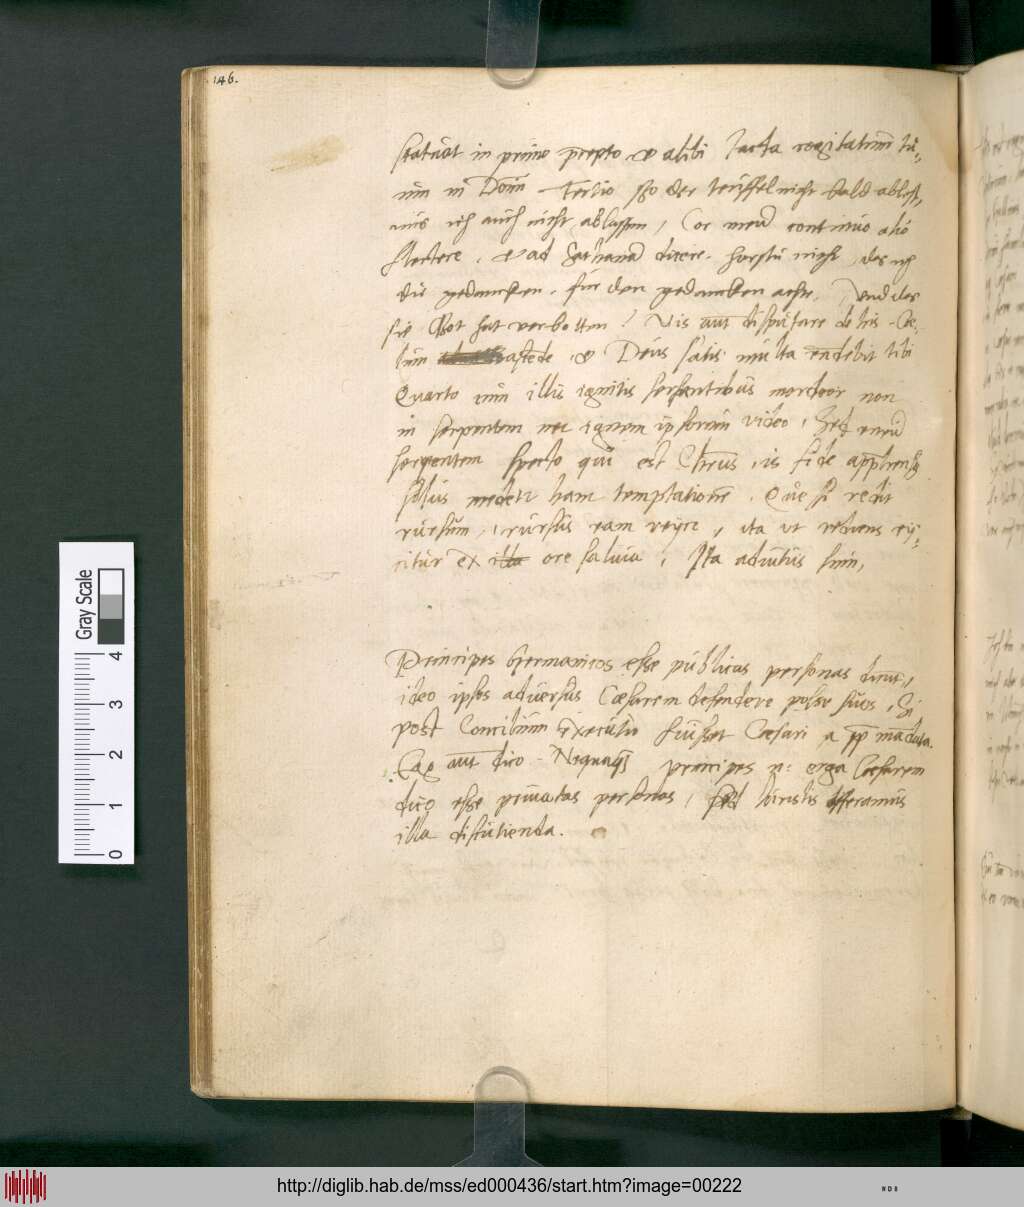 146.
statuat in primo prcepto et alibi Iacta cogitatum tu-
um in Dom Tertio sso der teuffel nicht bald ablest,
mus ich auch nicht ablassen, Cor meu continuo alio
flectere. et ad Sathanam dicere. horstu nicht, das ich
die gedancken. fur den gedancken achte, vnd das
sie Got hat verbotten? Vis aut disputare de his. Ce-
lum ascede. et Deus satis multa rndebit tibi
Quarto cum illis ignitis serpentibus mordeor non
in serpentem nec ignem ipsorum video, Sed eneu
serpentem specto qui est Chrus, is fide apprehensus
illius medetur hanc temptatione. Que si redit
rursum, rursus eam reijce, ita ut rediens eij-
citur ex illa ore saliuia, Ita adiutus sum,
Principes Germanicos esse publicas personas dicunt,
ideo ipsos aduersus Caesarem defendere posse suos, Si
post Concilium executio fuisset Caesari a pp madata.
Ego aut dico. Nequaq principes n: erga Caesarem
dico esse priuatas personas, sed Iuristis differamus
illa discutienda.
Gray Scale
4
3
2
1
0
http://diglib.hab.de/mss/ed000436/start.htm?image=00222